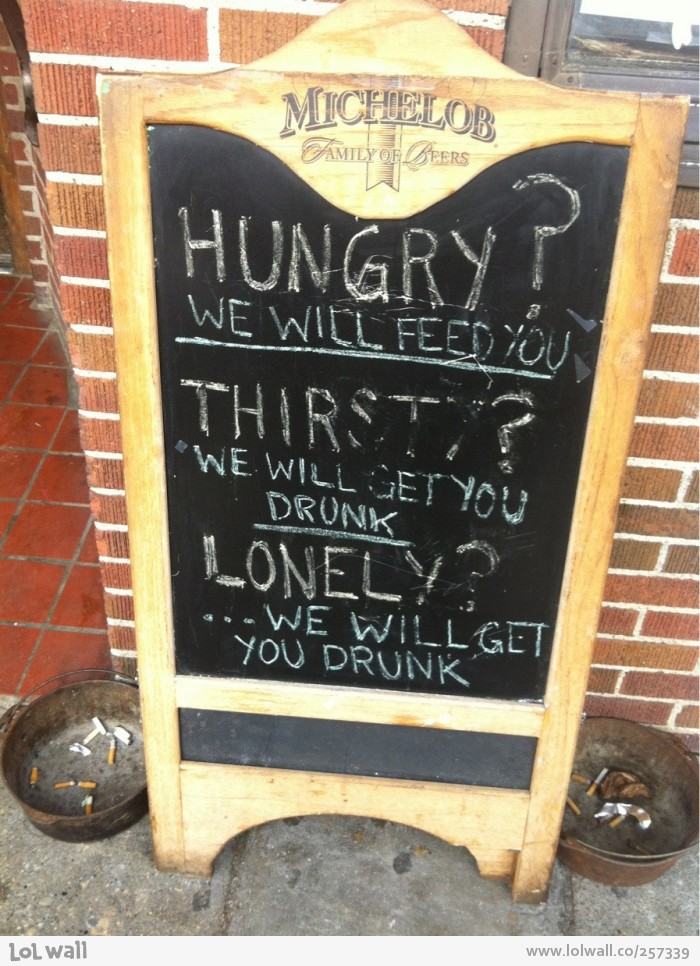 MICHELOB
FAMILY OF BEERS
HUNGRY?
WE WILL FEED YOU
THIRSTY?
WE WILL GET YOU
DRUNK
LONELY?
...WE WILL GET
YOU DRUNK
LOL wall
www.lolwall.co/257339